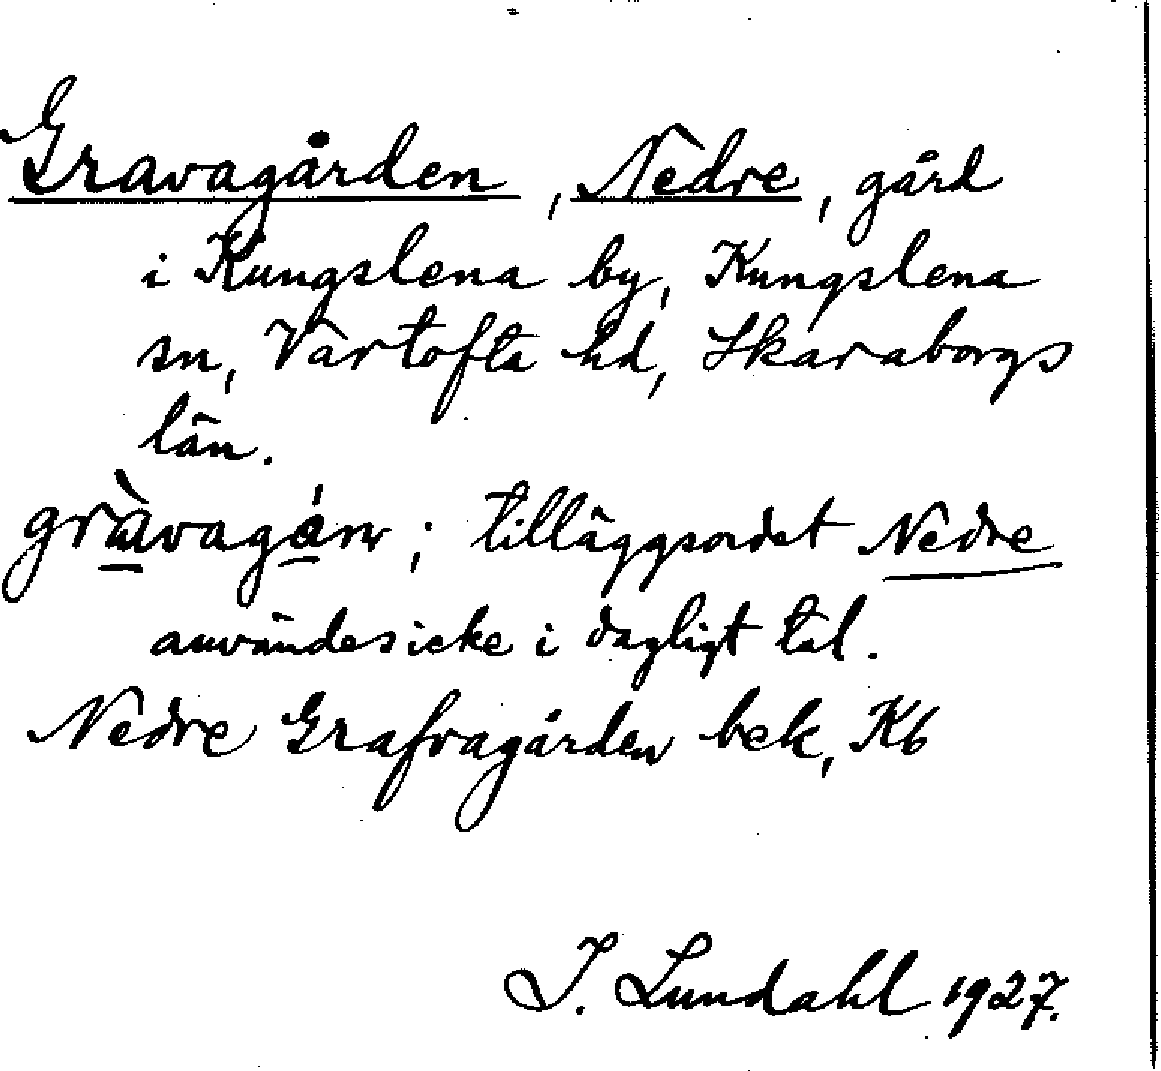 Gravagården, Nedre, gård
i Kungslena by, Kungslena
sn, Vartofta hd, Skaraborgs
län.
gràvagán; tilläggsordet Nedre
användes icke i dagligt tal.
Nedre Grafvagården bek, Kb
I. Lundahl 1927.